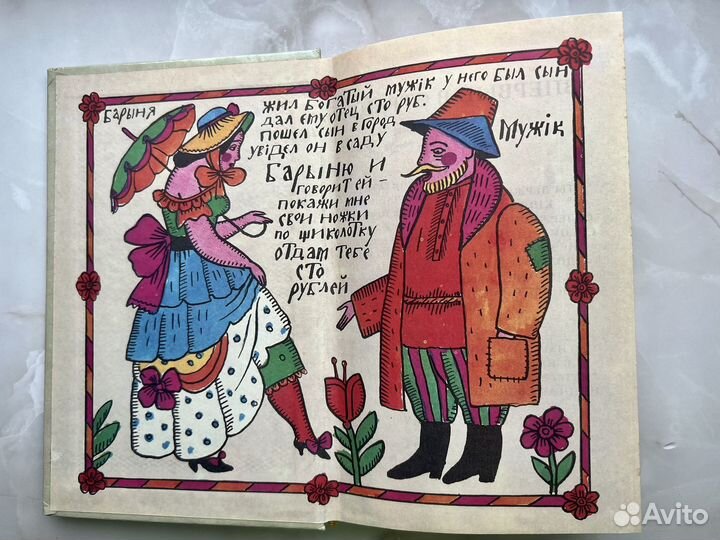 Барыня
жил богатый мужік у него был сын
дал ему отец сто руб.
пошел сын в город
увідел он в саду
Барыню и
говорит ей –
покажи мне
свои ножки
по шиколотку
отдам тебе
сто
рублей
Мужік
Avito